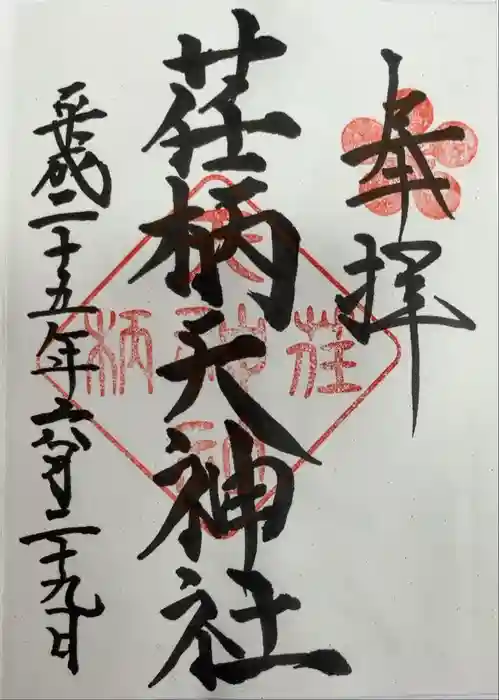 奉拝
荏柄天神社
平成二十五年六月二十九日